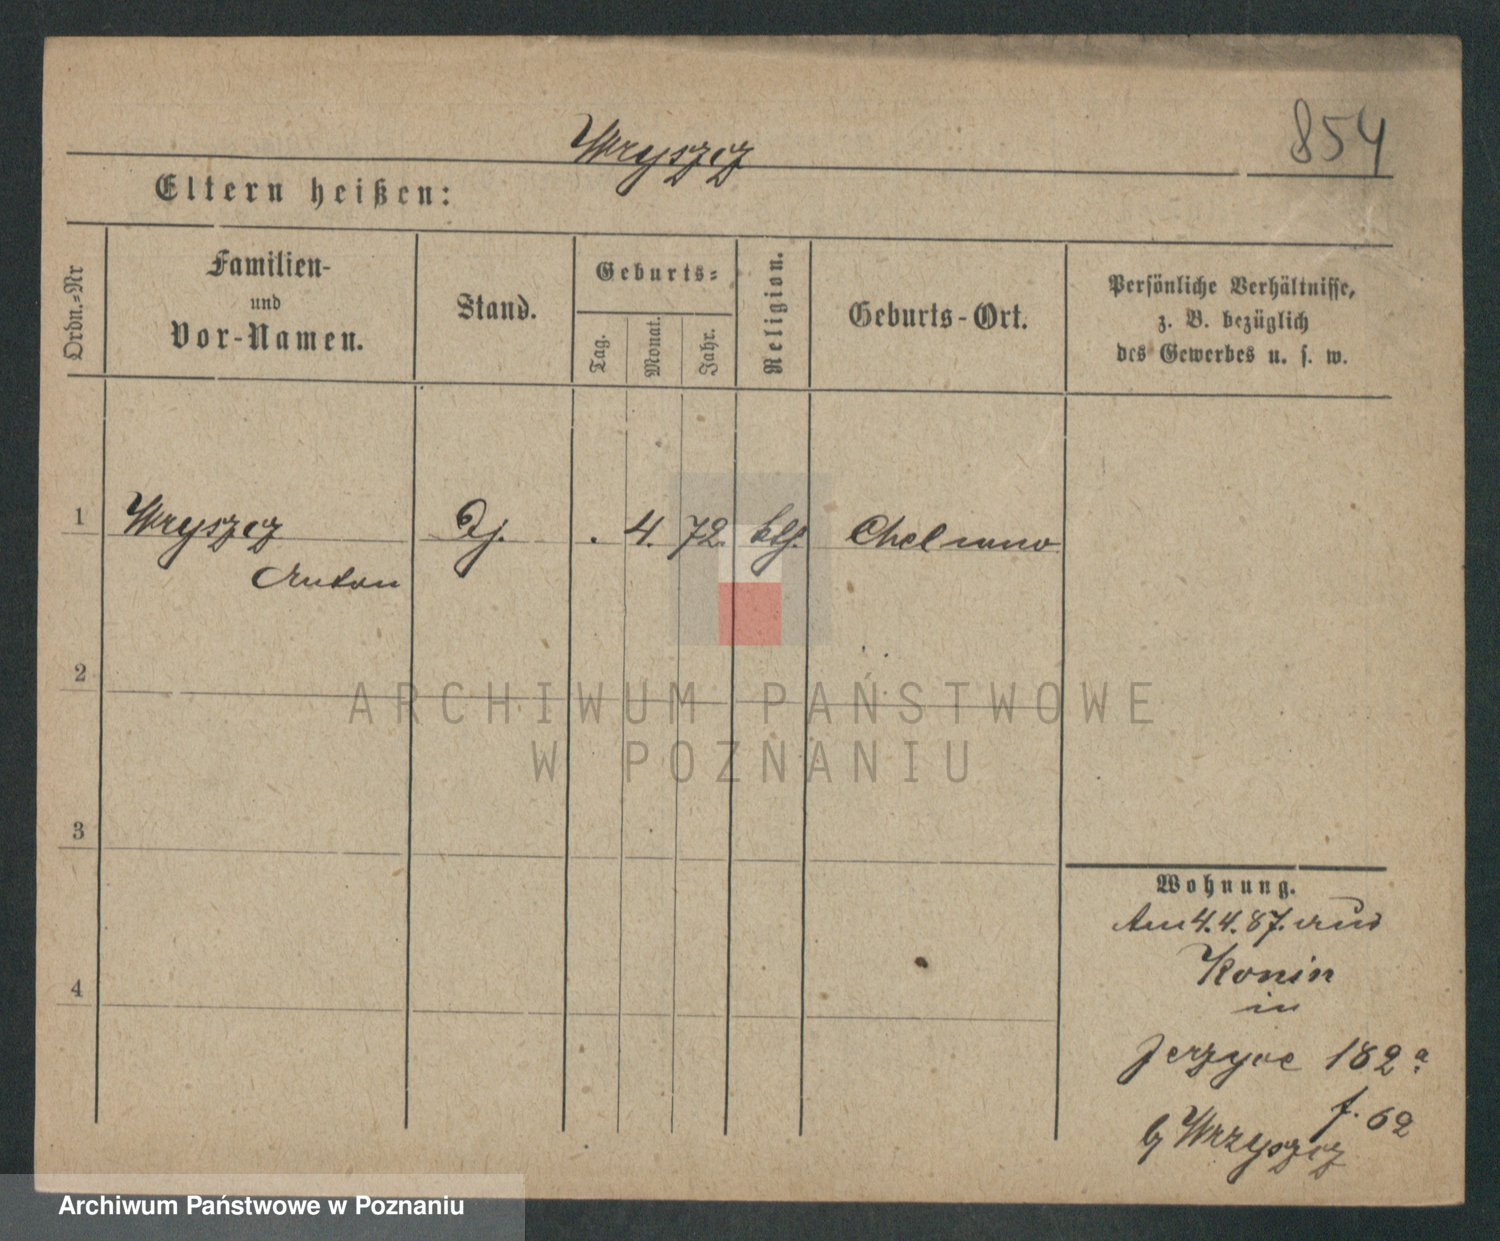 Wryszcz
854
Eltern heißen:
Ordn.-Nr
Familien-
und
Vor-Namen.
Stand.
Geburts-
Tag.
Monat.
Jahr.
Religion.
Geburts-Ort.
Persönliche Verhältnisse,
z. B. bezüglich
des Gewerbes u. s. w.
1 Wryszcz . 4. 72. kth. Chelmno
Anton
2
ARCHIWUM PAŃSTWOWE
W POZNANIU
3
Wohnung.
Am 4.4.87. aus
Konin
4
in
Jerzyce 182 a
f. 62
b/ Wrzyszcz
Archiwum Państwowe w Poznaniu